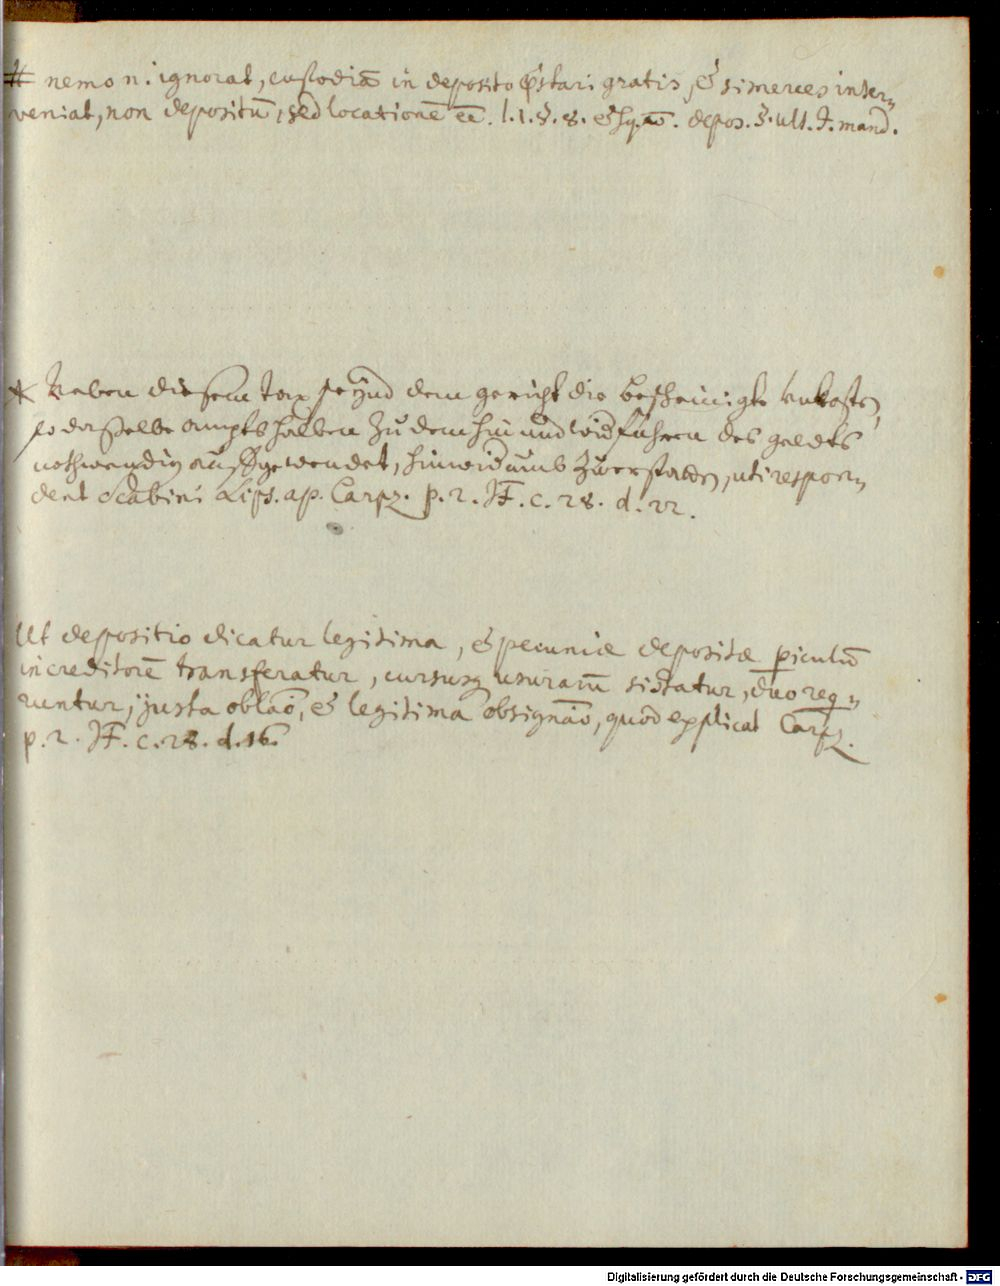 # nemo n. ignorat, custodiā in deposito p̄stari gratis, & si merces inter-
veniat, non depositū, sed locationē eē. l. 1. §. 8. & sqq. depos. §. ult. J. mand.
* Neben diesem tax seÿnd dem gericht die bescheinigte unkosten,
so derselbe ampts halben zu dem hin und widführen des geldts
nothwendig außgewendet, hinwiderumb zuerstatten, uti respon-
dent Scabini Lips. ap. Carpz. p. 2. JF. c. 28. d. 22.
Ut depositio dicatur legitima, & pecuniæ depositæ piculū
in creditorē transferatur, cursusq usurarū sistatur, duo req-
runtur, justa oblaō, & legitima obsignāo, quod explicat Carpz.
p. 2. JF. c. 28. d. 16.
Digitalisierung gefördert durch die Deutsche Forschungsgemeinschaft - DFG